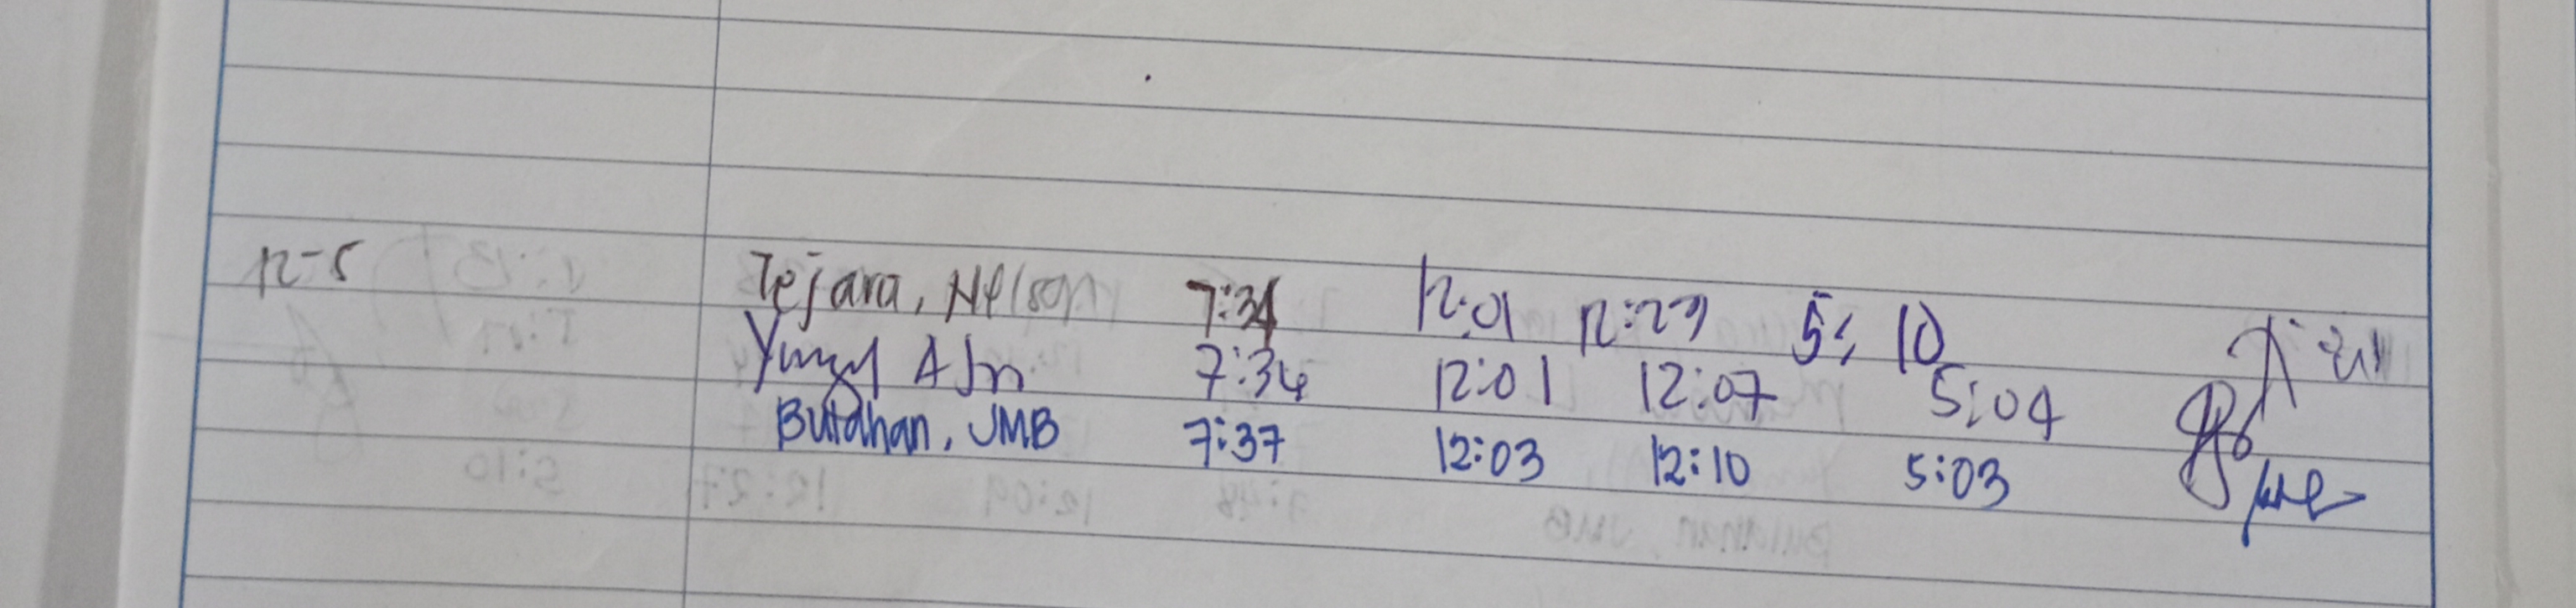 12-5 Tejara, Nelson 7:34 12:01 12:29 5:10
7:34 12:01 12:07 5:04
Butahan, JMB 7:37 12:03 12:10 5:03